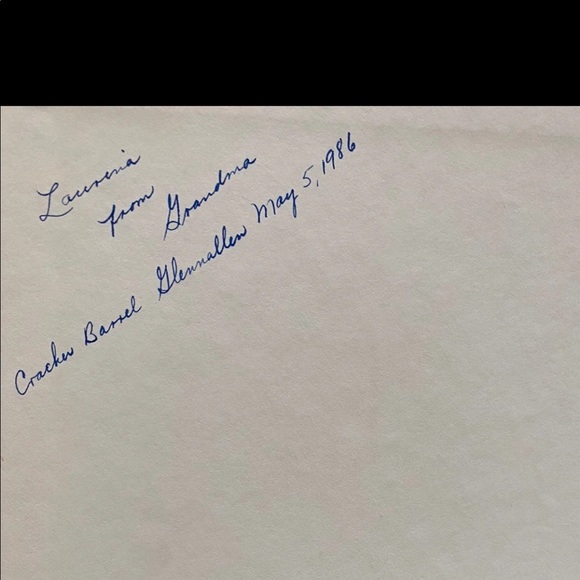 Laurena
from
Grandma
Cracker Barrel Glennallen May 5, 1986